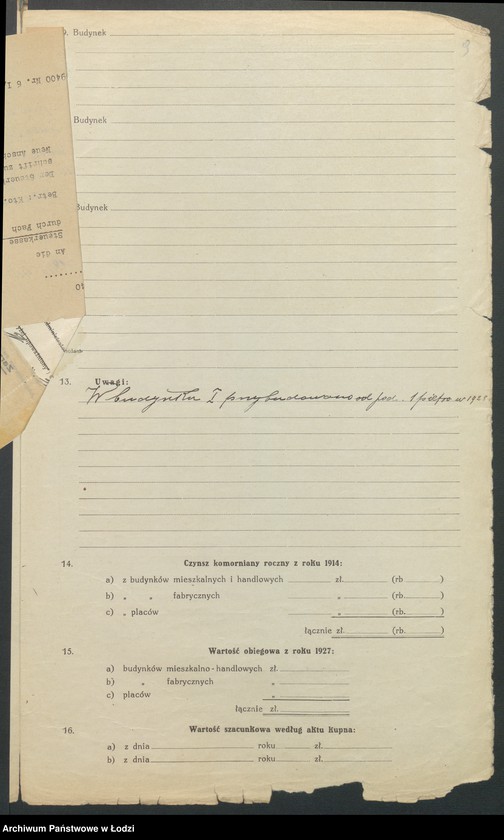 9. Budynek
3
Budynek
Budynek
9400 Nr. 6 I
Neue Anschr
schrift zu
Der Steuer
Betr.: Kto.
durch Pach
Steuerkasse
An die
40
13. Uwagi:
W budynku I przybudowano od pod. 1 piętro w 192
14. Czynsz komorniany roczny z roku 1914:
a) z budynków mieszkalnych i handlowych zł. (rb )
b) „ „ fabrycznych „ (rb. )
c) „ placów „ (rb. )
łącznie zł. (rb. )
15. Wartość obiegowa z roku 1927:
a) budynków mieszkalno-handlowych zł.
b) „ fabrycznych „
c) placów „
łącznie zł.
16. Wartość szacunkowa według aktu kupna:
a) z dnia roku zł.
b) z dnia roku zł.
Archiwum Państwowe w Łodzi